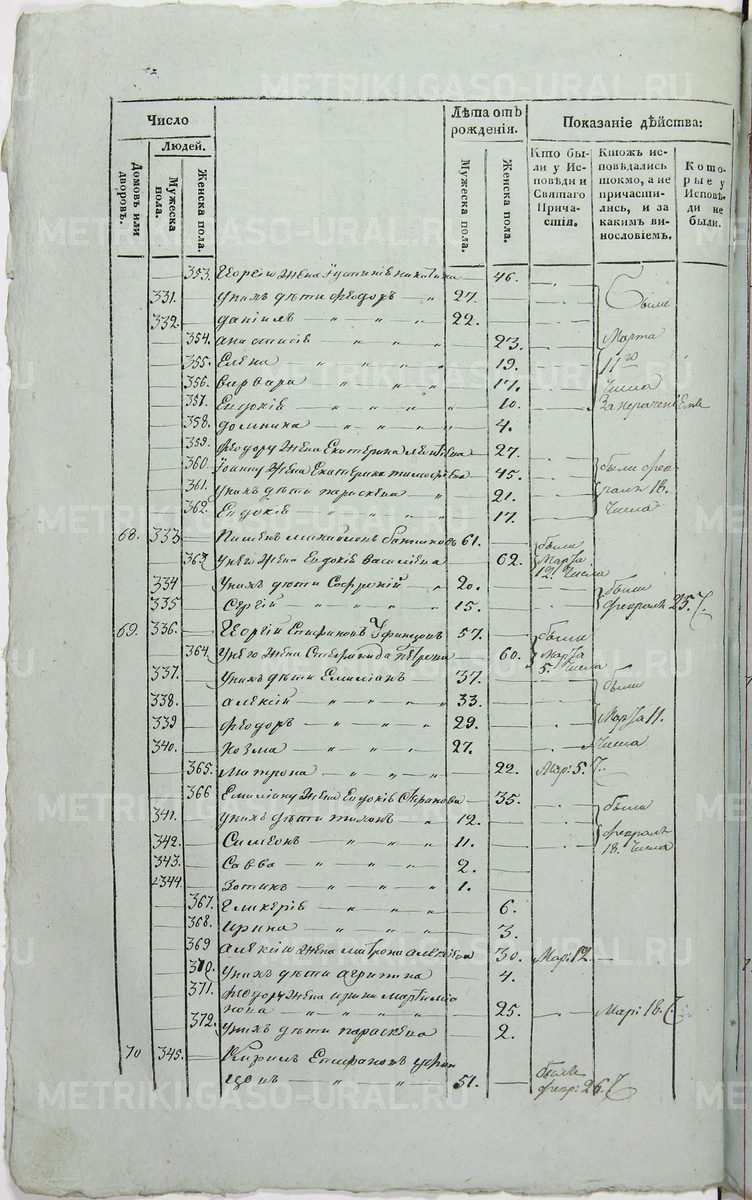 METRIKI.GASO-URAL.RU METRIKI.GASO-URAL.RU
Число Лѣта отъ рожденія. Показаніе дѣйства:
Людей.
Домовъ или дворовъ. Мужеска пола. Женска пола. Мужеска пола. Женска пола. Кто были у Исповѣди и Святаго Причастія. Ктожъ исповѣдались токмо, а не причастились, и за какимъ винословіемъ. Которые у Исповѣди не были.
353. Георгію жена 46.
331. У нихъ дѣти Феодоръ 27. были
332. Даніилъ 22.
354. Анастасія 23. Марта
355. Елена 19. 11го
356. Варвара 17. числа
357. Евдокія 10.
358. Домника 4.
359. Феодору жена Екатерина 27.
360. Іоанну жена Екатерина Тимофѣева 45. были фев-
361. У нихъ дѣти Параскева 21. раля 18.
362. Евдокія 17. числа
68. 333 Пименъ Михайловъ 61. были
363 У него жена Евдокія Василіева 62. Марта 12. числа
334 У нихъ дѣти Софроній 20. были
335 Сергій 15. февраля 25.
69. 336 Георгій Епифановъ 57. были
364. У него жена Степанида Петрова 60. Марта 5. числа
337. У нихъ дѣти Емиліанъ 37. были
338. Алексій 33.
339 Феодоръ 29. Марта 11.
340. Козма 27. числа
365. Матрона 22. Мар: 5.
366 Емиліану жена Евдокія 35. были
341. У нихъ дѣти 12.
342. Симеонъ 11. февраля 18. числа
343. Савва 2.
344. Зотикъ 1.
367. Гликерія 6.
368. Ирина 3.
369 Алексію жена Матрона 30. Мар: 12.
370. У нихъ дѣти Агрипина 4.
371. Феодору жена Ирина
нова 25. Мар: 18.
372. У нихъ дѣти Параскева 2.
70 345. Кирилъ Епифановъ
51. были февр: 26.
METRIKI.GASO-URAL.RU